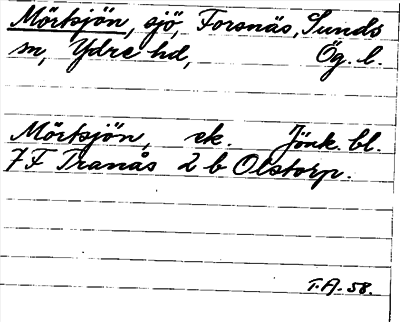 Mörtsjön, sjö, Forsnäs, Sunds
sn, Ydre hd, Ög. l.
Mörtsjön, ek. Jönk. bl.
7F Tranås 2 b Olstorp.
T.A. 58.